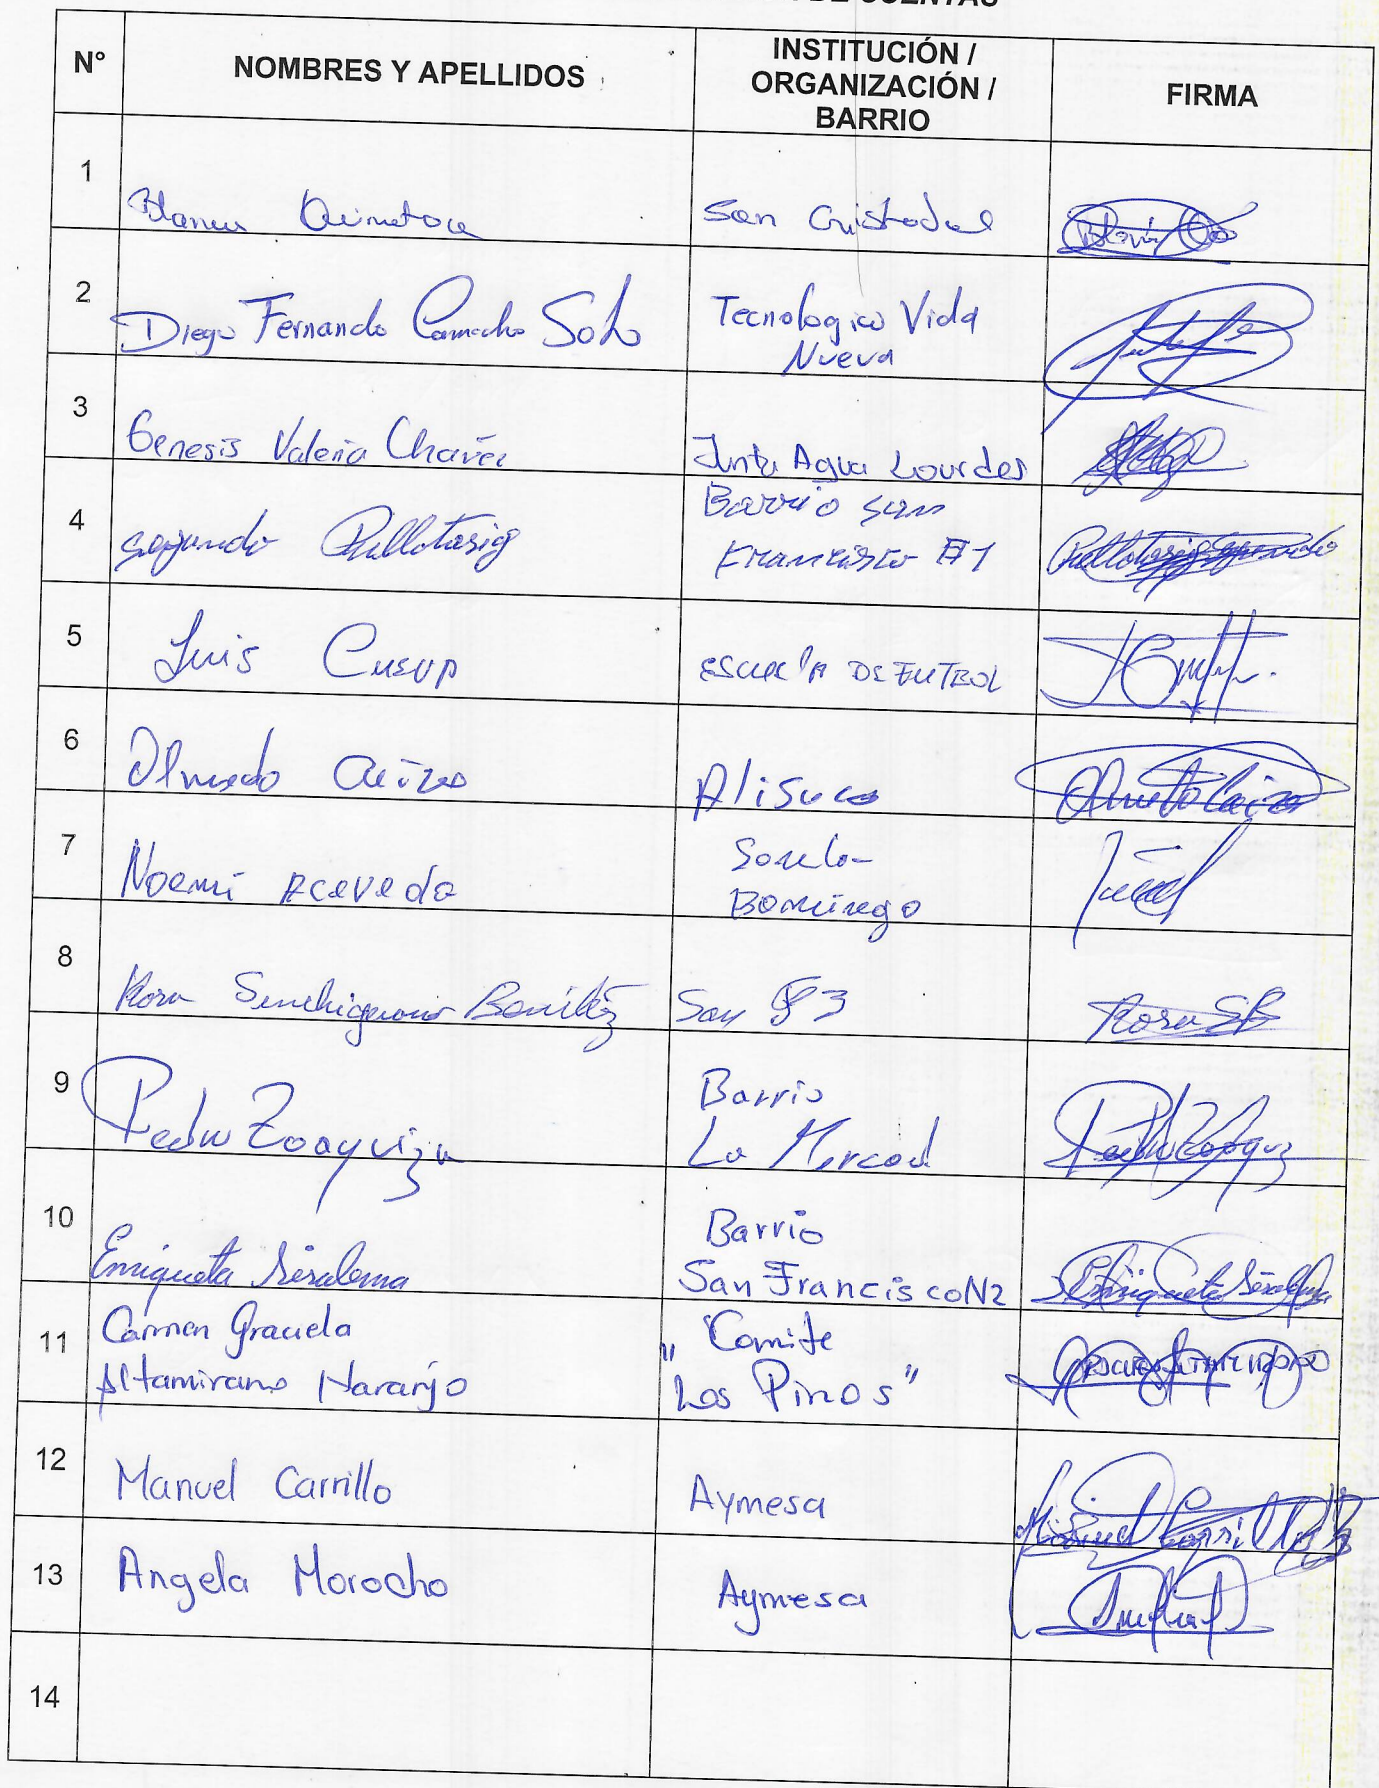 DE CUENTAS
N° NOMBRES Y APELLIDOS INSTITUCIÓN / ORGANIZACIÓN / BARRIO FIRMA
1 San Cristobal
2 Diego Fernando Camacho Soto Tecnologico Vida
Nueva
3 Genesis Valeria Chavez Junta Agua Lourdes
4 segundo Pullotasig Barrio san
Francisco #1 Pullotasig Segundo
5 Luis Cueva ESCUELA DE FUTBOL
6 Olmedo Caiza Alisuco
7 Noemi Acevedo
8 Rosa Benitez San 3 Rosa SB
9 Pedro Toaquiza Barrio
La Merced
10 Enriqueta Sisalema Barrio
San Francisco N2 Enriqueta Sisalema
11 Carmen Graciela
Altamirano Naranjo "Comite
Los Pinos"
12 Manuel Carrillo Aymesa Manuel Carrillo
13 Angela Morocho Aymesa
14